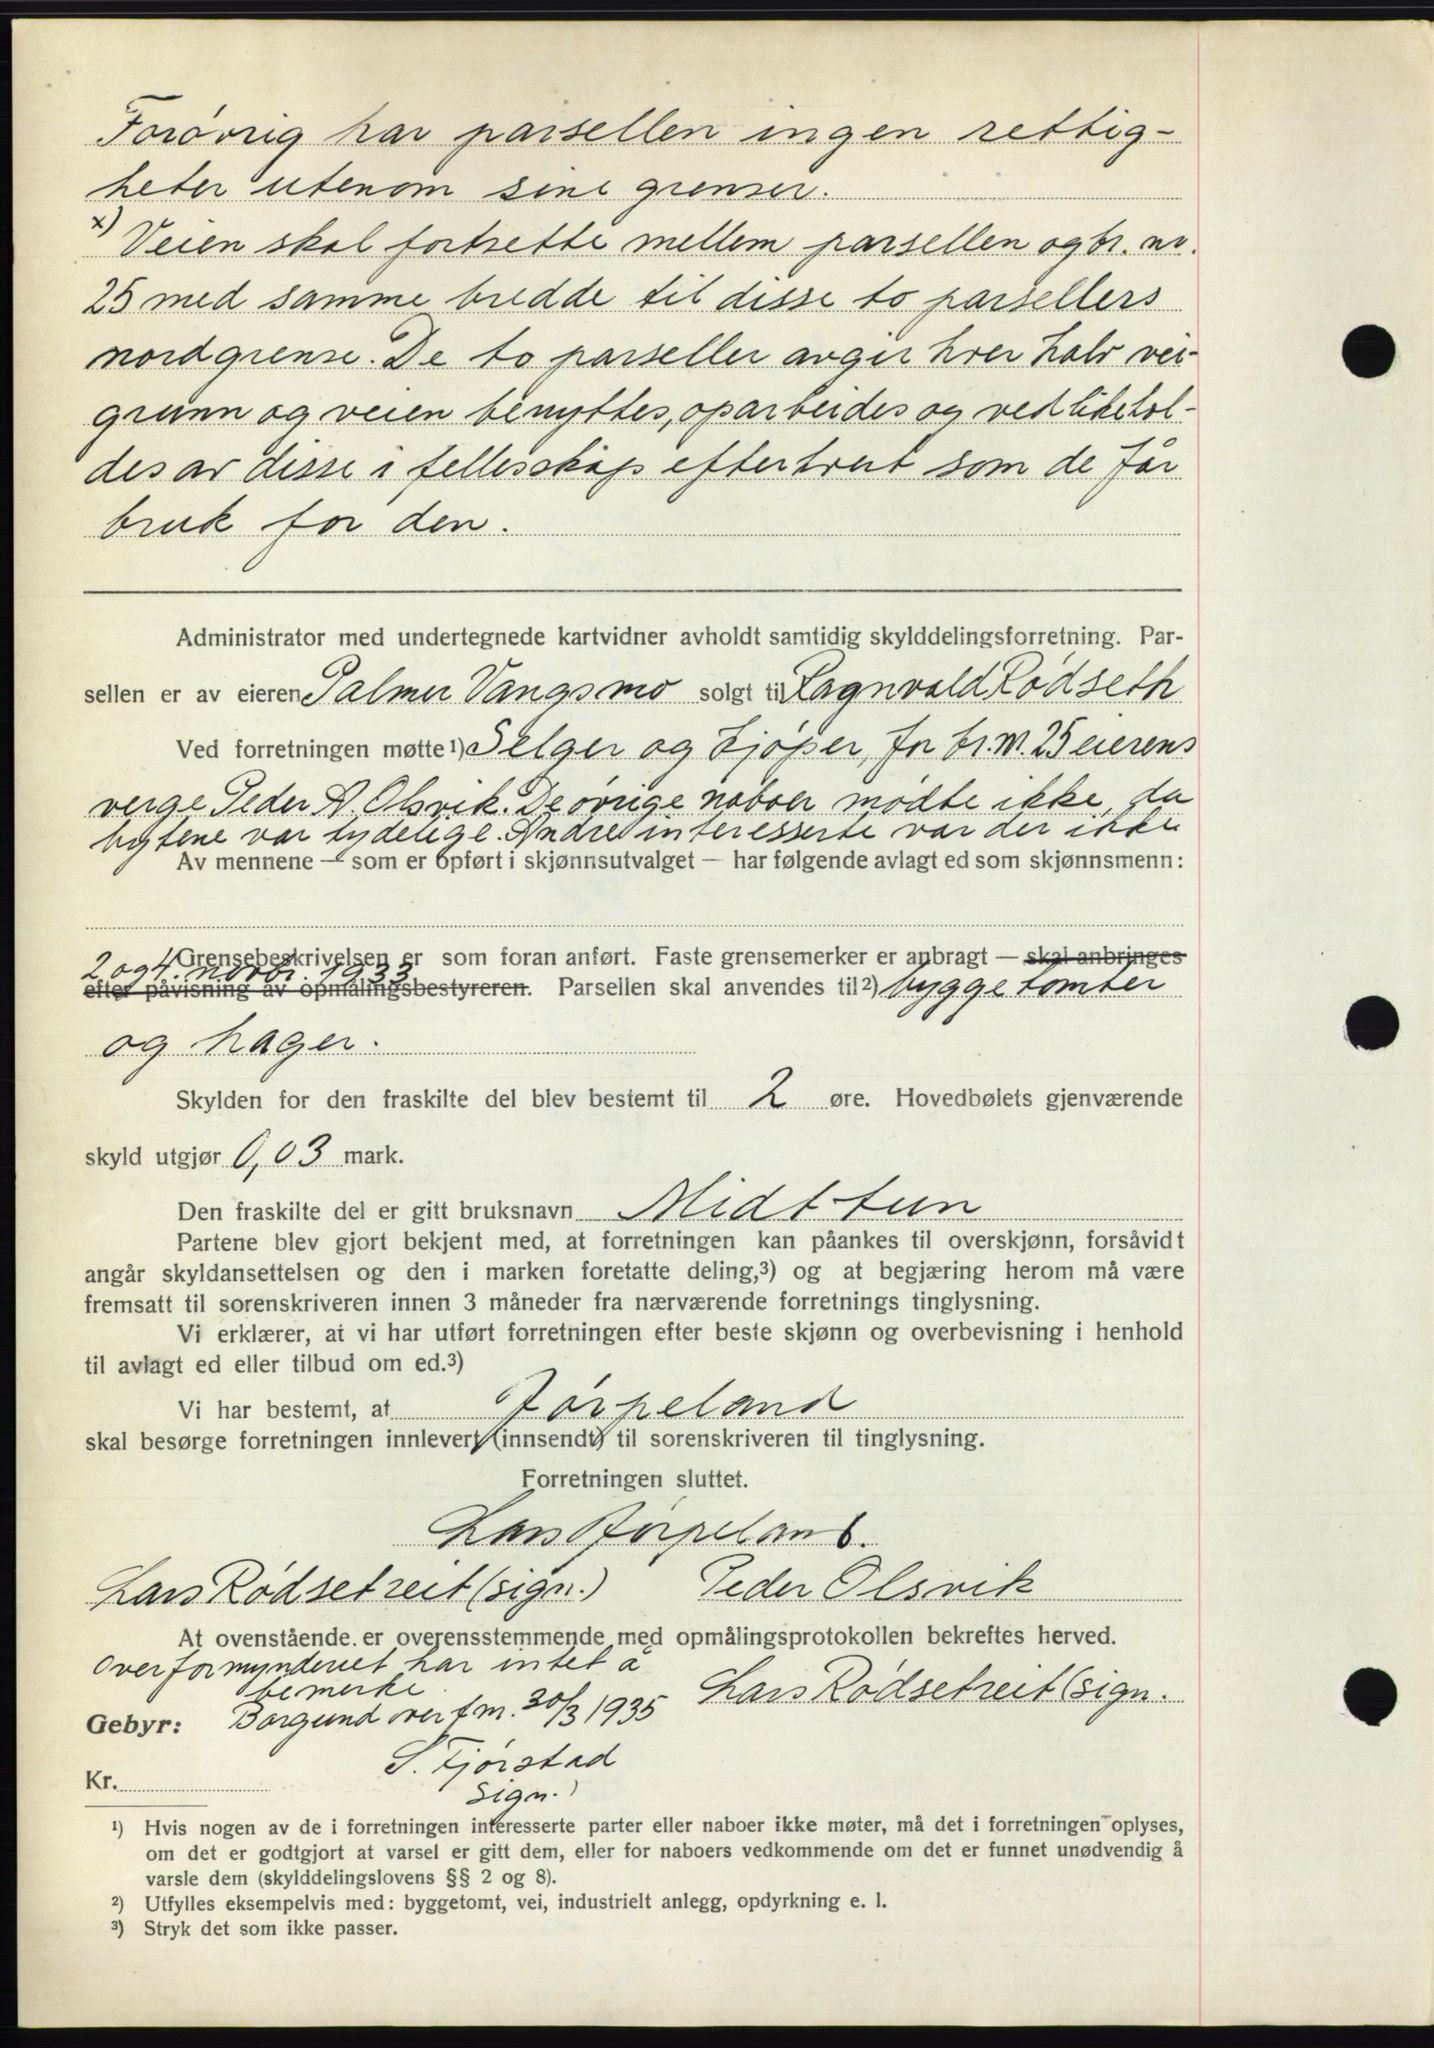 Forøvrig har parsellen ingen rettig-
heter utenom sine grenser.
x) Veien skal fortsette mellem parsellen og br. nr.
25 med samme bredde til disse to parsellers
nordgrense. De to parseller avgir hver halv vei-
grunn og veien benyttes, oparbeides og vedlikehol-
des av disse i fellesskap efterhvert som de får
bruk for den.
Administrator med undertegnede kartvidner avholdt samtidig skylddelingsforretning. Par-
sellen er av eieren Palmer Vangsmo solgt til Ragnvald Rødseth
Ved forretningen møtte ¹) Selger og kjøper, for br. nr. 25 eierens
verge Peder A. Olsvik. De øvrige naboer mødte ikke, da
bytene var tydelige. Andre interesserte var der ikke
Av mennene — som er opført i skjønnsutvalget — har følgende avlagt ed som skjønnsmenn:
Grensebeskrivelsen er som foran anført. Faste grensemerker er anbragt — skal anbringes
2 og 4. novbr. 1933
efter påvisning av opmålingsbestyreren. Parsellen skal anvendes til ²) byggetomter
og hager.
Skylden for den fraskilte del blev bestemt til 2 øre. Hovedbølets gjenværende
skyld utgjør 0,03 mark.
Den fraskilte del er gitt bruksnavn Midttun
Partene blev gjort bekjent med, at forretningen kan påankes til overskjønn, forsåvidt
angår skyldansettelsen og den i marken foretatte deling,³) og at begjæring herom må være
fremsatt til sorenskriveren innen 3 måneder fra nærværende forretnings tinglysning.
Vi erklærer, at vi har utført forretningen efter beste skjønn og overbevisning i henhold
til avlagt ed eller tilbud om ed.³)
Vi har bestemt, at Jørpeland
skal besørge forretningen innlevert (innsendt) til sorenskriveren til tinglysning.
Forretningen sluttet.
Lars Jørpeland.
Lars Rødsetreit (sign.) Peder Olsvik
At ovenstående er overensstemmende med opmålingsprotokollen bekreftes herved.
Overformynderiet har intet å
bemerke.
Lars Rødsetreit (sign.
Gebyr: Borgund overfm. 30/3 1935
S. Fjørstad
Kr.
sign.)
¹) Hvis nogen av de i forretningen interesserte parter eller naboer ikke møter, må det i forretningen oplyses,
om det er godtgjort at varsel er gitt dem, eller for naboers vedkommende om det er funnet unødvendig å
varsle dem (skylddelingslovens §§ 2 og 8).
²) Utfylles eksempelvis med: byggetomt, vei, industrielt anlegg, opdyrkning e. l.
³) Stryk det som ikke passer.